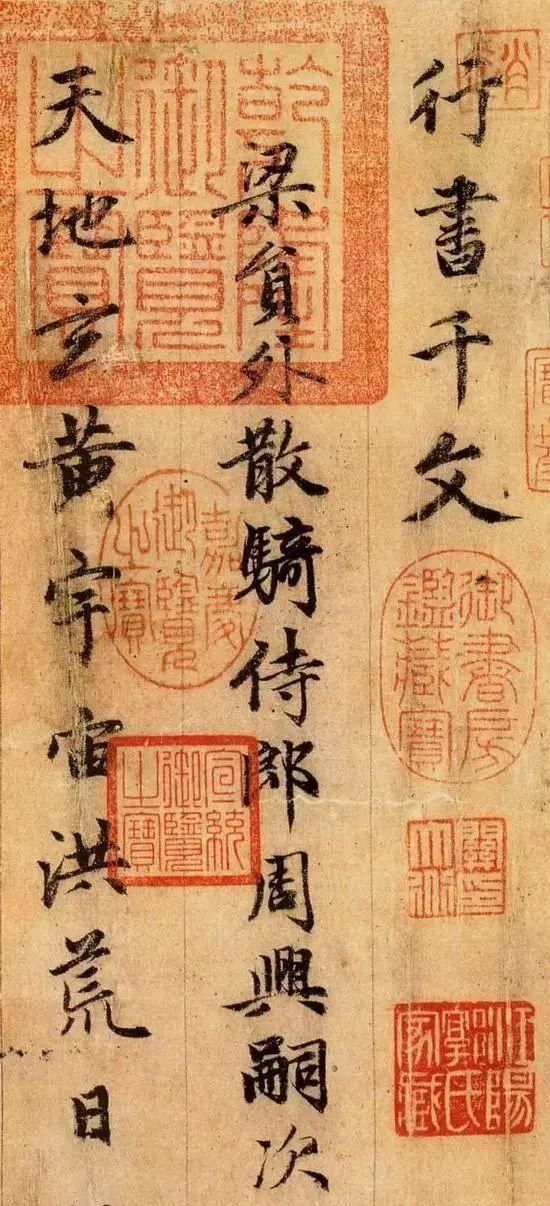 行書千文
御書房鑑藏寶
梁貟外散騎侍郎周興嗣次
乾隆御覽之寶
嘉慶御覽之寶
宣統御覽之寶
天地玄黄宇宙洪荒日